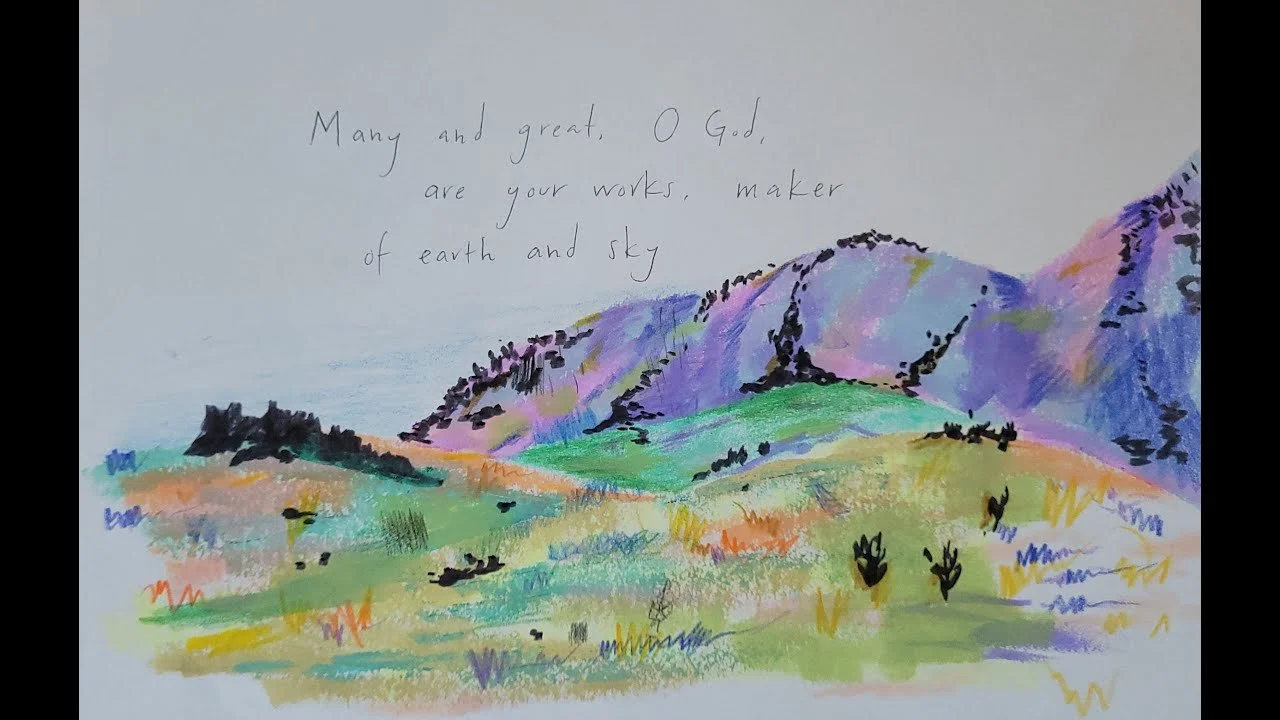 Many and great, O God,
are your works, maker
of earth and sky